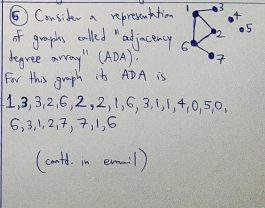 ⑥ Consider a representation
of graphs called "adjacency
degree array" (ADA).
For this graph its ADA is
1,3,3,2,6,2,2,1,6,3,1,1,4,0,5,0,
6,3,1,2,7,7,1,6
(contd. in email)
1
3
4
2
5
6
7